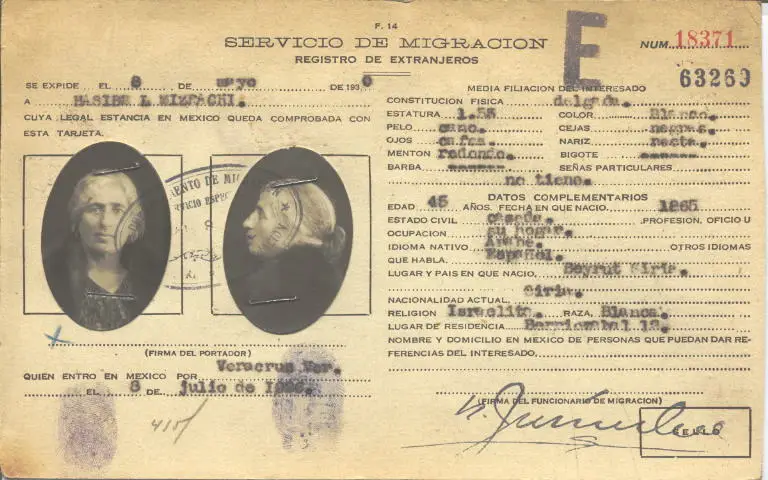 F. 14
SERVICIO DE MIGRACION
REGISTRO DE EXTRANJEROS
E
NUM. 18371
63269
SE EXPIDE EL 8 DE mayo DE 193
A HASIBE L MIZRACHI.
CUYA LEGAL ESTANCIA EN MEXICO QUEDA COMPROBADA CON
ESTA TARJETA.
(FIRMA DEL PORTADOR)
QUIEN ENTRO EN MEXICO POR Veracruz Ver.
EL 8 DE julio de
MEDIA FILIACION DEL INTERESADO
CONSTITUCION FISICA delgada.
ESTATURA 1.55 COLOR Blanco.
PELO cano. CEJAS negras.
OJOS cafes. NARIZ recta.
MENTON redondo. BIGOTE
BARBA SEÑAS PARTICULARES
no tiene.
DATOS COMPLEMENTARIOS
EDAD 45 AÑOS. FECHA EN QUE NACIO. 1885
ESTADO CIVIL casada. PROFESION, OFICIO U
OCUPACION su hogar.
IDIOMA NATIVO Arabe. OTROS IDIOMAS
QUE HABLA. Español.
LUGAR Y PAIS EN QUE NACIO, Beyrut Siria.
NACIONALIDAD ACTUAL, Siria.
RELIGION Israelita. RAZA, Blanca.
LUGAR DE RESIDENCIA 12.
NOMBRE Y DOMICILIO EN MEXICO DE PERSONAS QUE PUEDAN DAR RE-
FERENCIAS DEL INTERESADO.
(FIRMA DEL FUNCIONARIO DE MIGRACION)